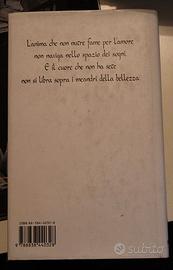 L'anima che non nutre fame per l'amore
non naviga nello spazio dei sogni.
E il cuore che non ha sete
non si libra sopra i meandri della bellezza
subito